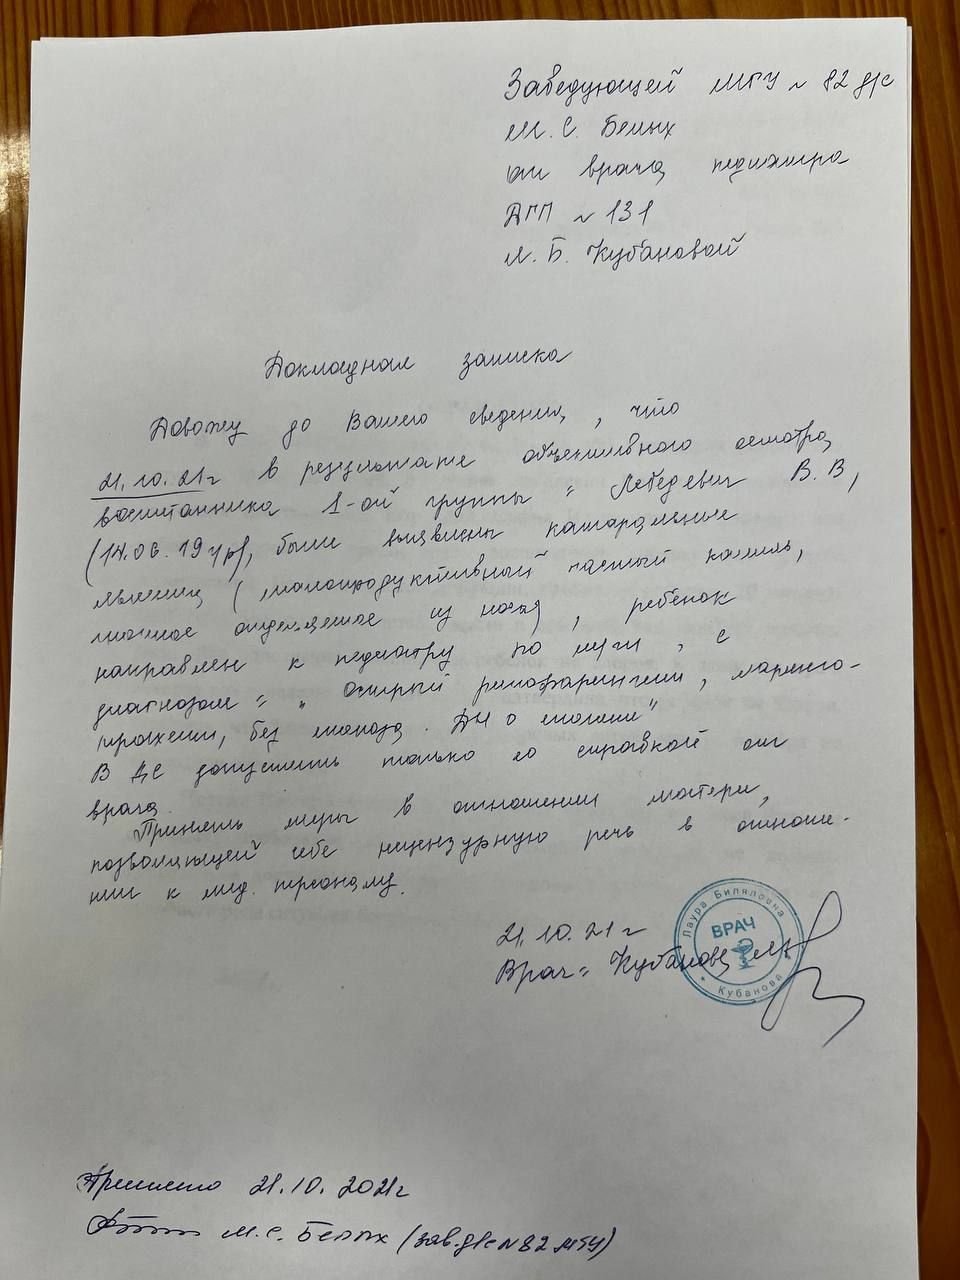 Заведующей МГУ № 82 д/с
М. С. Белых
от врача педиатра
ДГП № 131
Л. Б. Кубановой
Докладная записка
Довожу до Вашего сведения, что
21.10.21г в результате объективного осмотра
воспитанника 1-ой группы = Лебедевич В.В,
(14.06.19 гр), были выявлены катаральные
явления (малопродуктивный частый кашель,
отделяемое из носа), ребенок
направлен к педиатру по м/ж, с
диагнозом = " Острый ринофарингит, ларинго-
трахеит, без стеноза. ДН 0 степени"
В ДС допустить только со справкой от
врача.
Принять меры в отношении матери,
позволяющей себе нецензурную речь в отноше-
нии к мед. персоналу.
21.10.21г
Врач = Кубанова
Лаура Биляловна
ВРАЧ
Кубанова
Принято 21.10.2021г
М.С. Белых (зав.д/с №82 МГУ)